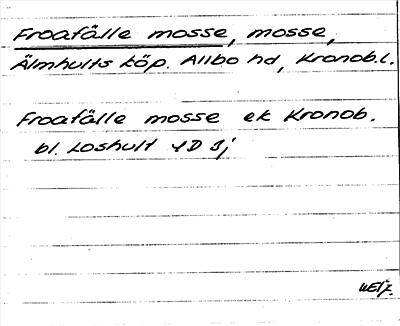 Froafälle mosse, mosse,
Älmhults köp. Allbo hd, Kronob.l.
Froafälle mosse ek Kronob.
bl. Loshult 4D Sj